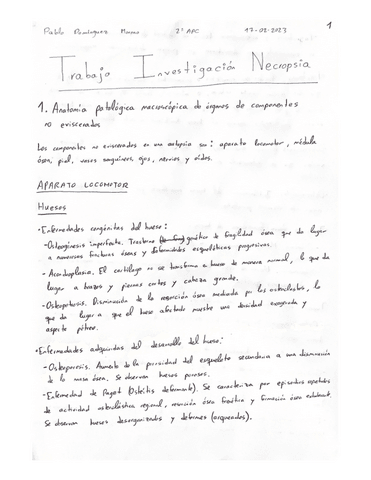 Pablo Domínguez Moreno 2º APC 17-02-2023 1
Trabajo Investigación Necropsia
1. Anatomía patológica macroscópica de órganos de componentes
no eviscerados
Los componentes no eviscerados en una autopsia son: aparato locomotor, médula
ósea, piel, vasos sanguíneos, ojos, nervios y oídos.
APARATO LOCOMOTOR
Huesos
• Enfermedades congénitas del hueso:
- Osteogénesis imperfecta. Trastorno genético de fragilidad ósea que da lugar
a numerosas fracturas óseas y deformidades esqueléticas progresivas.
- Acondroplasia. El cartílago no se transforma a hueso de manera normal, lo que da
lugar a brazos y piernas cortos y cabeza grande.
- Osteopetrosis. Disminución de la resorción ósea mediada por los osteoclastos, lo
que da lugar a que el hueso afectado muestre una densidad exagerada y
aspecto pétreo.
• Enfermedades adquiridas del desarrollo del hueso:
- Osteoporosis. Aumento de la porosidad del esqueleto secundaria a una disminución
de la masa ósea. Se observan huesos porosos.
- Enfermedad de Paget (Osteítis deformante). Se caracteriza por episodios repetidos
de actividad osteoclástica regional, resorción ósea frenética y formación ósea exuberant.
Se observan huesos desorganizados y deformes (arqueados).